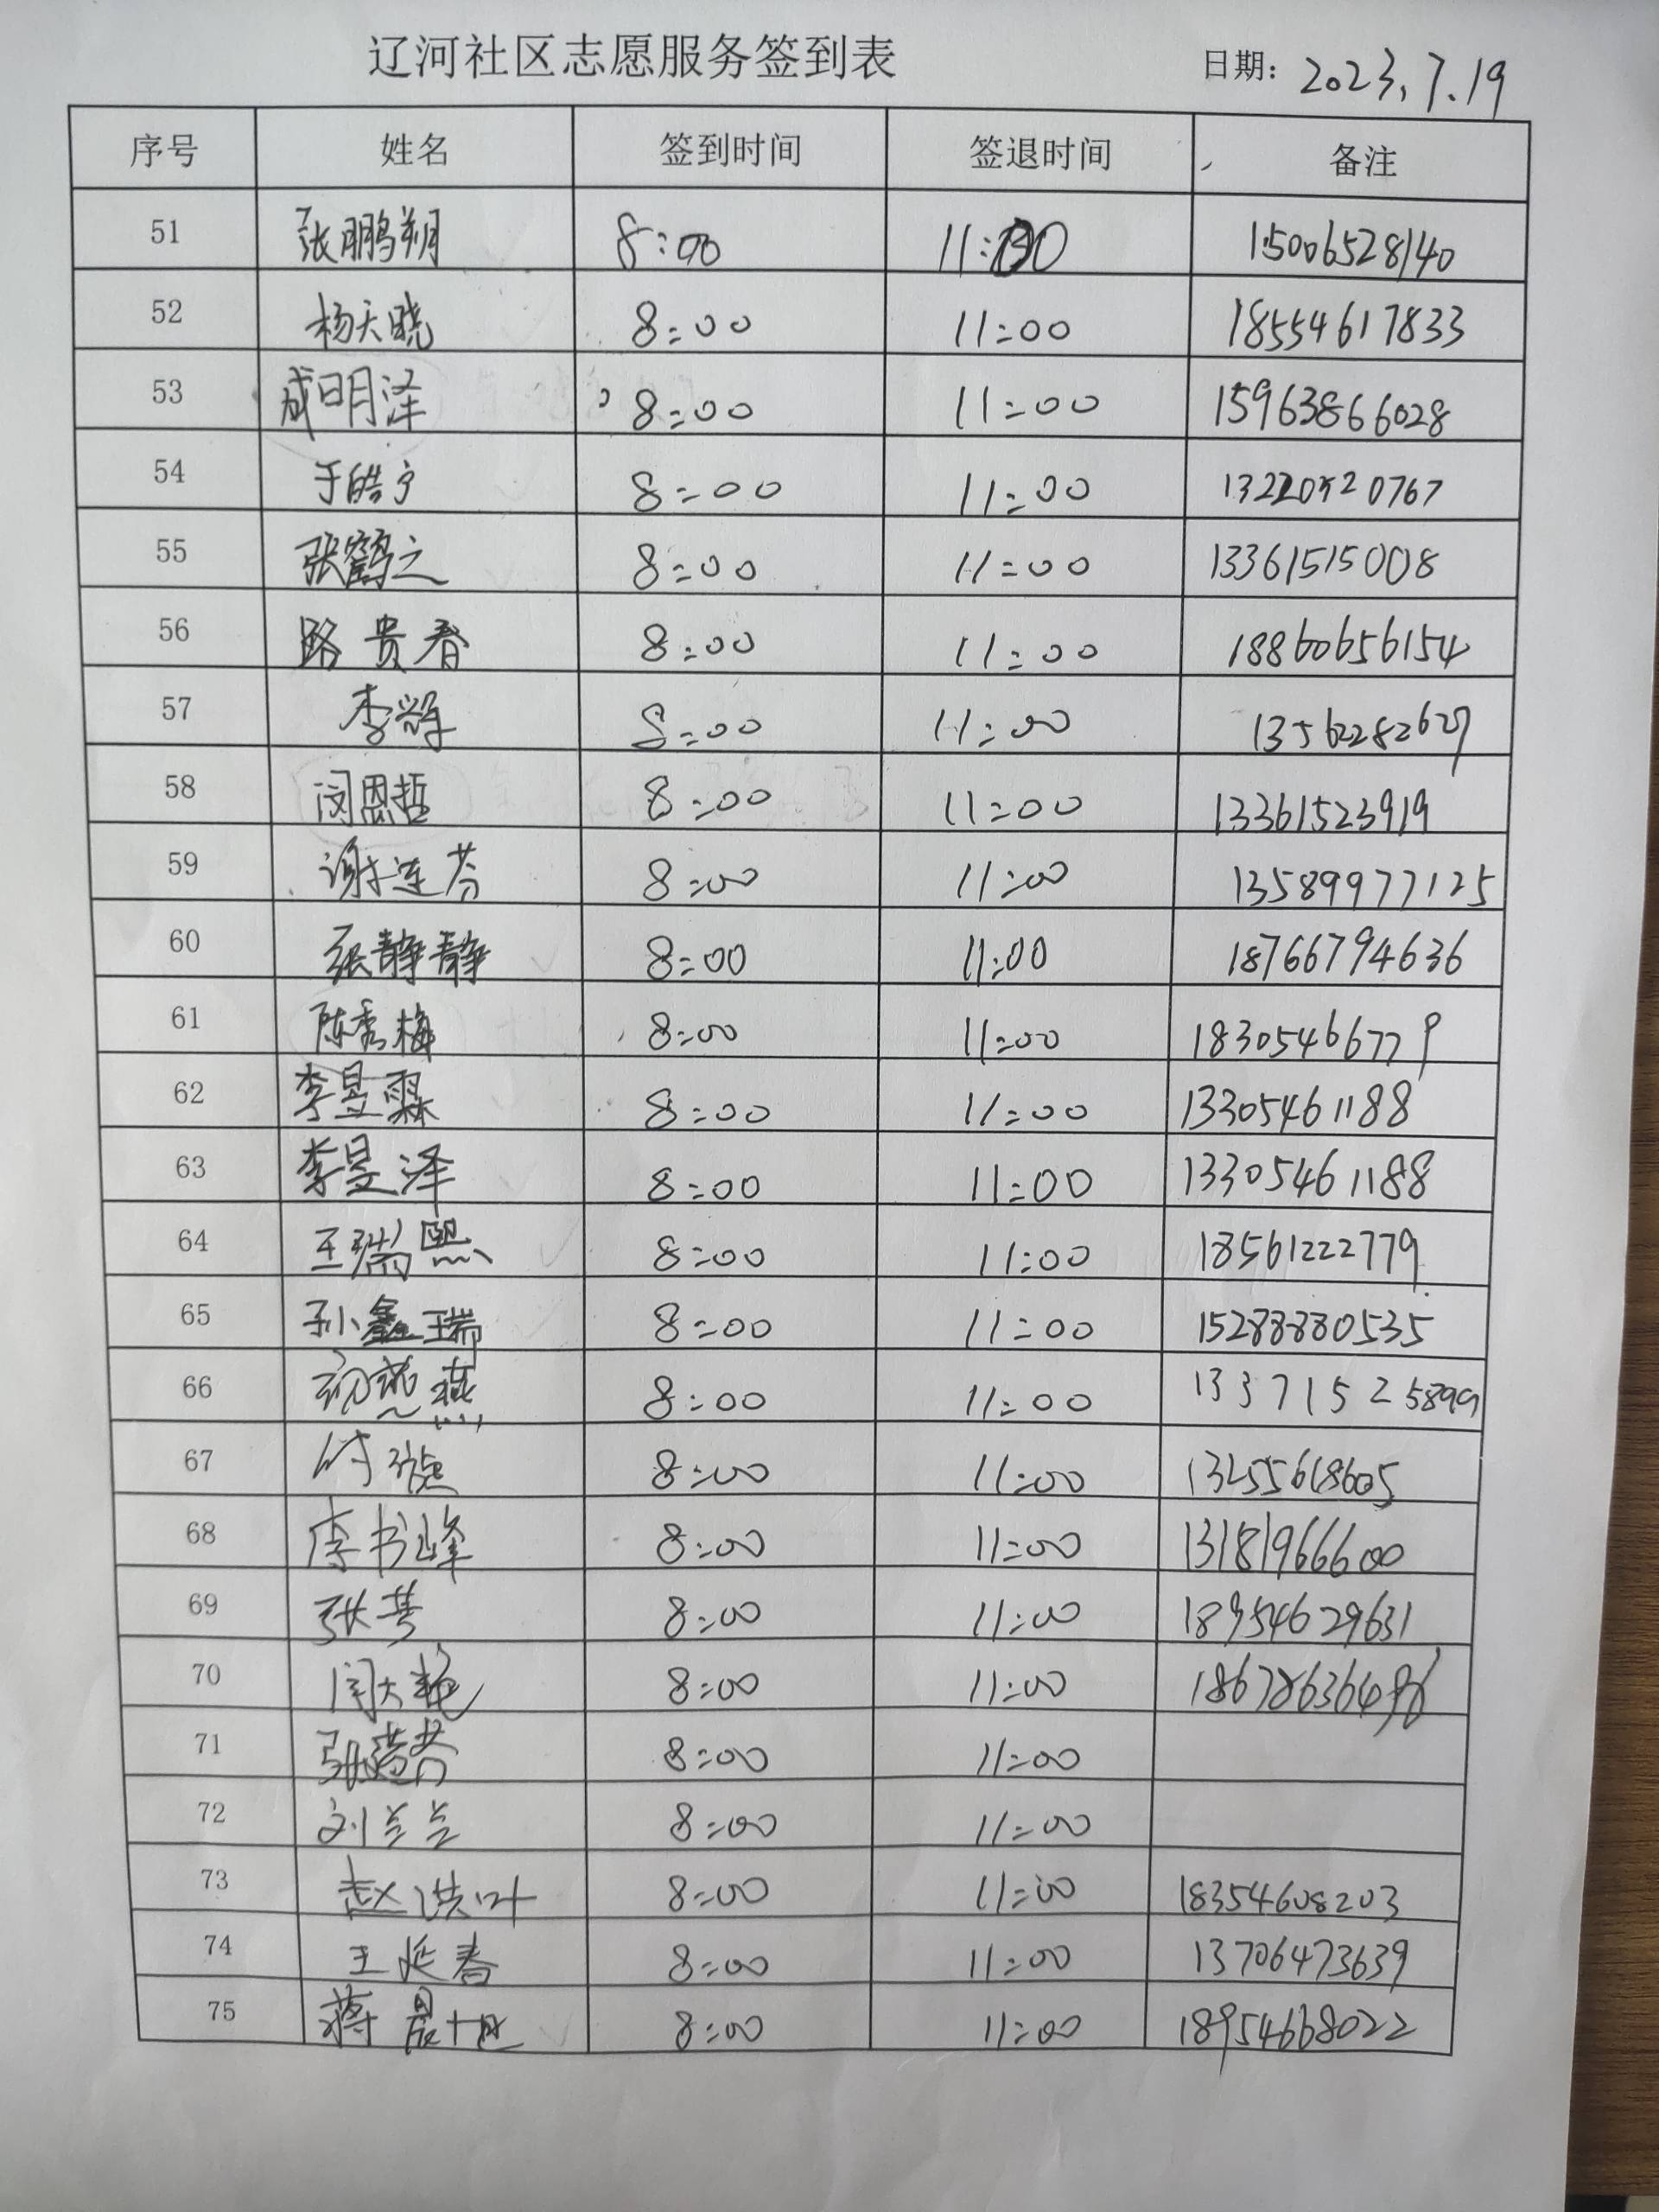 辽河社区志愿服务签到表 日期: 2023.7.19
序号 姓名 签到时间 签退时间 备注
51 张鹏翔 8:00 11:00 15006528140
52 杨天晓 8:00 11:00 18554617833
53 成明泽 8:00 11:00 15963866028
54 于皓宁 8:00 11:00 13220520767
55 张鹤之 8:00 11:00 13361515008
56 路贵春 8:00 11:00 18860656154
57 李 8:00 11:00
58 闵恩哲 8:00 11:00 13361523919
59 谢连芬 8:00 11:00 13589977125
60 张静静 8:00 11:00 18766794636
61 陈秀梅 8:00 11:00 18305466779
62 李昱霖 8:00 11:00 13305461188
63 李昱泽 8:00 11:00 13305461188
64 王瑞熙 8:00 11:00 18561222779
65 孙鑫瑞 8:00 11:00 15288880535
66 燕 8:00 11:00 13371525899
67 付 8:00 11:00 13255618605
68 李书峰 8:00 11:00 13181966600
69 张 8:00 11:00 18954629631
70 闫大艳 8:00 11:00
71 张 8:00 11:00
72 刘兰兰 8:00 11:00
73 赵洪叶 8:00 11:00 18354608203
74 王延春 8:00 11:00 13706473639
75 蒋晨旭 8:00 11:00 18954668022